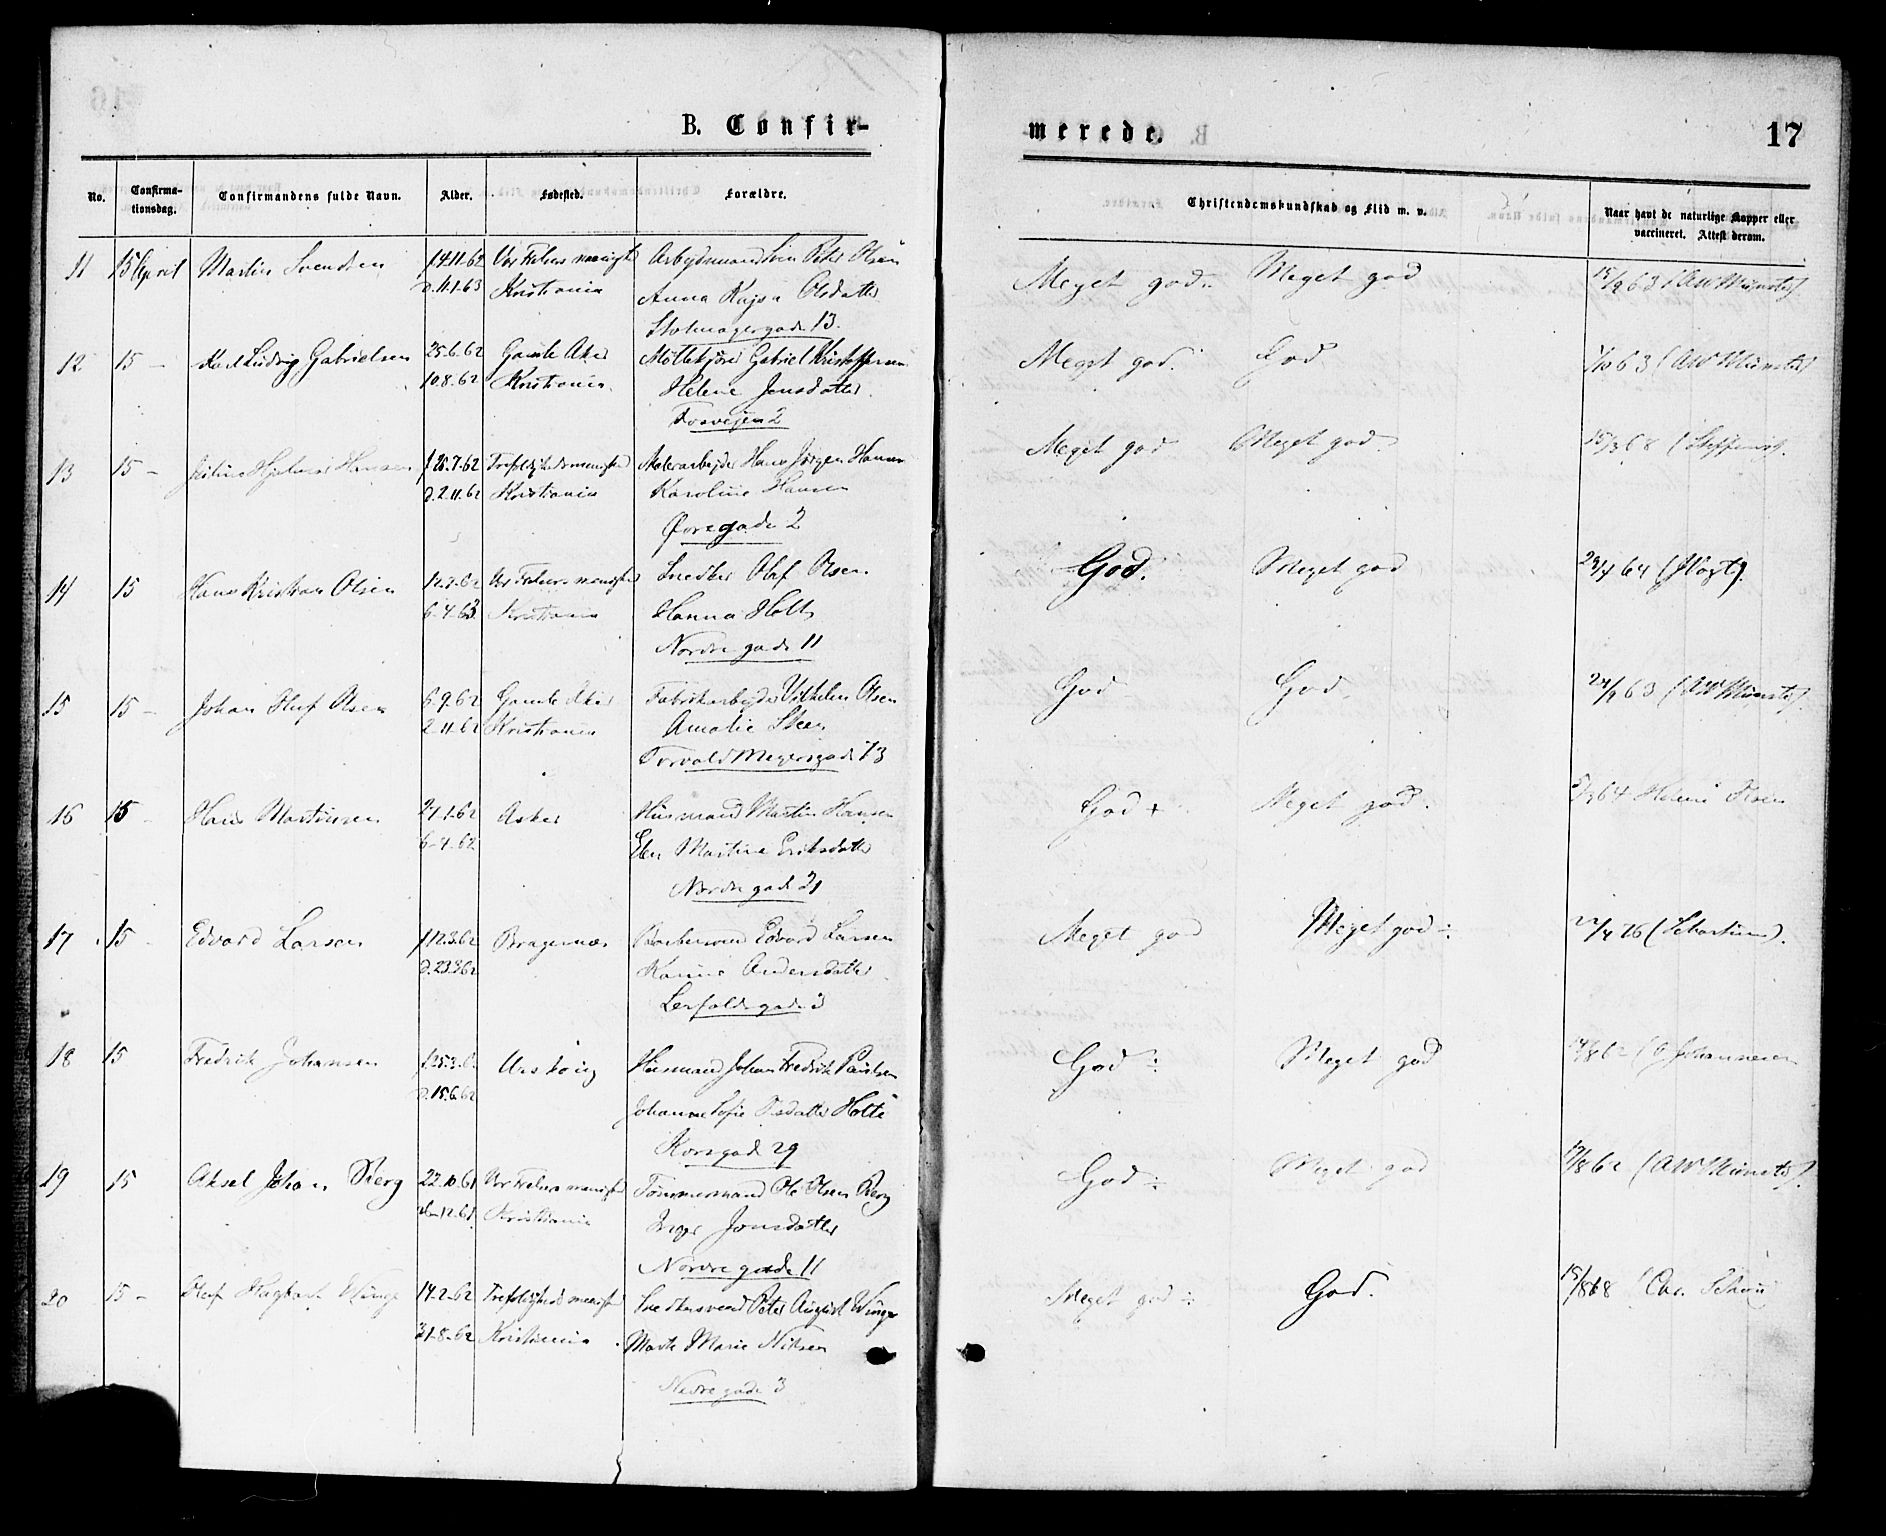 B. Confir-
merede.
17
No.
Confirma-
tionsdag.
Confirmandens fulde Navn.
Alder.
Fødested.
Forældre.
Christendomskundskab og Flid m. v.
Naar havt de naturlige Kopper eller
vaccineret. Attest derom.
11 15 April Martin Svendsen f 14.11.62 Vor Frelsers menighed Arbeydsmand Peter Olsen Meget god Meget god 63 (AW Münster)
d. 11.1.63 Kristiania Anna Kajsa Olsdatter
Stolmagergade 13.
12 15 — Karl Ludvig Gabrielsen 25.6.62 Gamle Aker Møllekjører Gabriel Kristoffersen Meget god. God 1/10 63 (AW Münster)
10.8.62 Kristiania Helene Jonsdatter.
Fosvejen 2
13 15 — Hjalmar Hansen f 28.7.62 Trefoldighedsmenighed Malerarbejder Hans Jørgen Hansen Meget god Meget god 15/3 68 (Steffens).
d. 2.11.62 Kristiania Karoline Hansen
Øvregade 2
14 15 Hans Kristian Olsen Vor Frelsers menighed Snedker Olaf Olsen God. Meget god 23/4 64 (Vogt).
6-4-63 Kristiania Hanna Holt
Nordregade 11
15 15 — Johan Oluf Olsen 6.9.62 Gamle Aker Fabrikarbejder Vilhelm Olsen God God. 63 (AW Münster)
2-11-62 Kristiania Amalie
Torvald Meyersgade 73
16 15 — Hans Martinsen 1.62 Asker Husmand Martin Hansen God + Meget god. 64 Helene Olsen
6-4-62 Martine Eriksdatter
Nordregade 21
17 15 — Edvard Larsen f 12.3.62 Bragernæs Edvard Larsen Meget god Meget god ÷ 4 76 (Schartum).
d. 23.3.62 Karine Andersdatter
Lerfaldsgade 3
18 15 Fredrik Johansen f 25.3.62 Urskoug Husmand Johan Fredrik Paulsen God ÷ Meget god 8 62 (Johannesen
d. 15.6.62 Johanne Sofie Holte
Korsgade 29
19 15 Aksel Johan Berg 22.10.61 Vor Frelsers menighed Tømmermand Ole Olsen Berg God ÷ Meget god 19/8 62 (AW Münster).
12.61 Kristiania Inger Jonsdatter
Nordregade 11
20 15 — Oluf Hagbart Winge 14.2.62 Trefoldigheds menighed Snedkersvend Peter August Winge Meget god ÷ God. 15/8 68 Chr.
31.8.62 Kristiania Marte Marie Nilsen
Nedregade 3